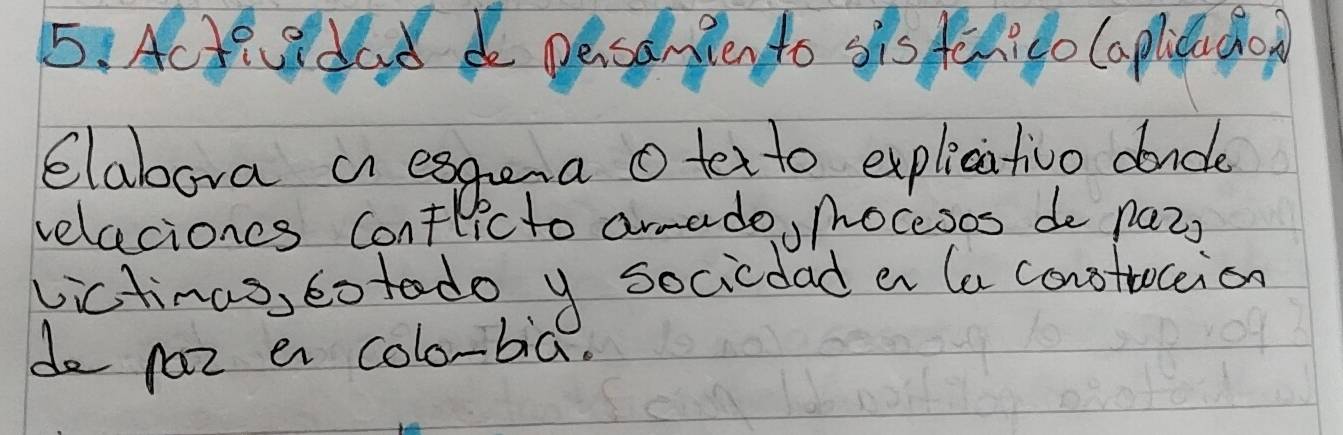 5. Actividad de pensamiento sistémico (aplicación)
Elabora un esquema o texto explicativo donde
relaciones conflicto armado, procesos de paz,
victimas, estado y sociedad en la construccion
de paz en colombia.